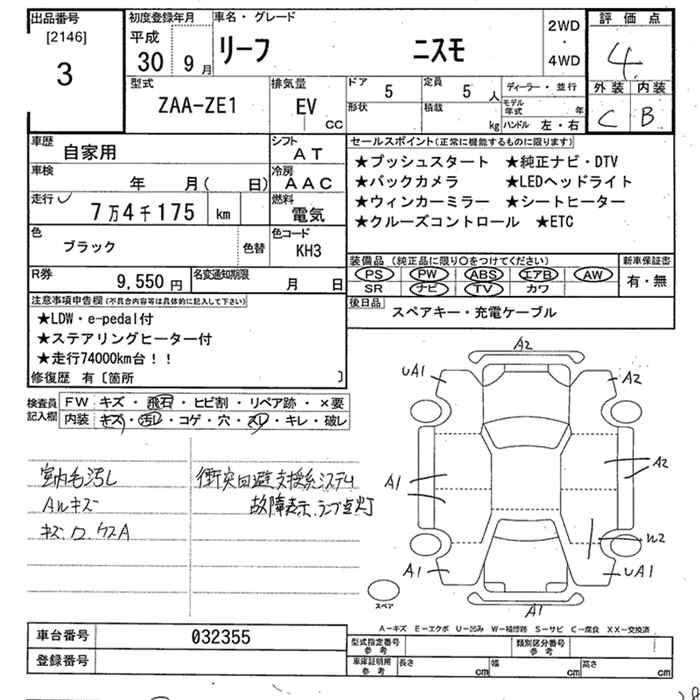 出品番号 初度登録年月 車名・グレード 評価点
[2146] 平成 リーフ ニスモ 2WD
3 30 9月 ・ 4
4WD
型式 排気量 ドア 5 定員 5人 ディーラー・並行 外装 内装
ZAA-ZE1 EV CC 形状 積載 kg モデル年式 年 C B
ハンドル 左・右
車歴 自家用 シフト AT
車検 年 月( 日) 冷房 AAC
走行 7万4千175 km 燃料 電気
色 ブラック 色替 色コード KH3
R券 9,550円 名変通知期限 月 日
セールスポイント(正常に機能するものに限ります)
★プッシュスタート ★純正ナビ・DTV
★バックカメラ ★LEDヘッドライト
★ウィンカーミラー ★シートヒーター
★クルーズコントロール ★ETC
装備品 (純正品に限り○をつけてください) 新車保証書
PS PW ABS エアB AW 有・無
SR ナビ TV カワ
後日品 スペアキー・充電ケーブル
注意事項申告欄(不具合内容等は具体的に記入して下さい)
★LDW・e-pedal付
★ステアリングヒーター付
★走行74000km台!!
修復歴 有〔箇所 〕
検査員 FW キズ・飛石・ヒビ割・リペア跡・×要
記入欄 内装 キズ・汚レ・コゲ・穴・スレ・キレ・破レ
室内毛汚レ 衝突回避支援系システム
Aルキズ 故障表示.ランプ点灯
A2
UA1 A2
A1 A2
W2
A1 UA1
A1
スペア
A-キズ E-エクボ U-凹み W-補修跡 S-サビ C-腐食 XX-交換済
車台番号 032355
登録番号
型式指定番号 参考 類別区分番号 参考
車庫証明用 参考 長さ cm 幅 cm 高さ cm